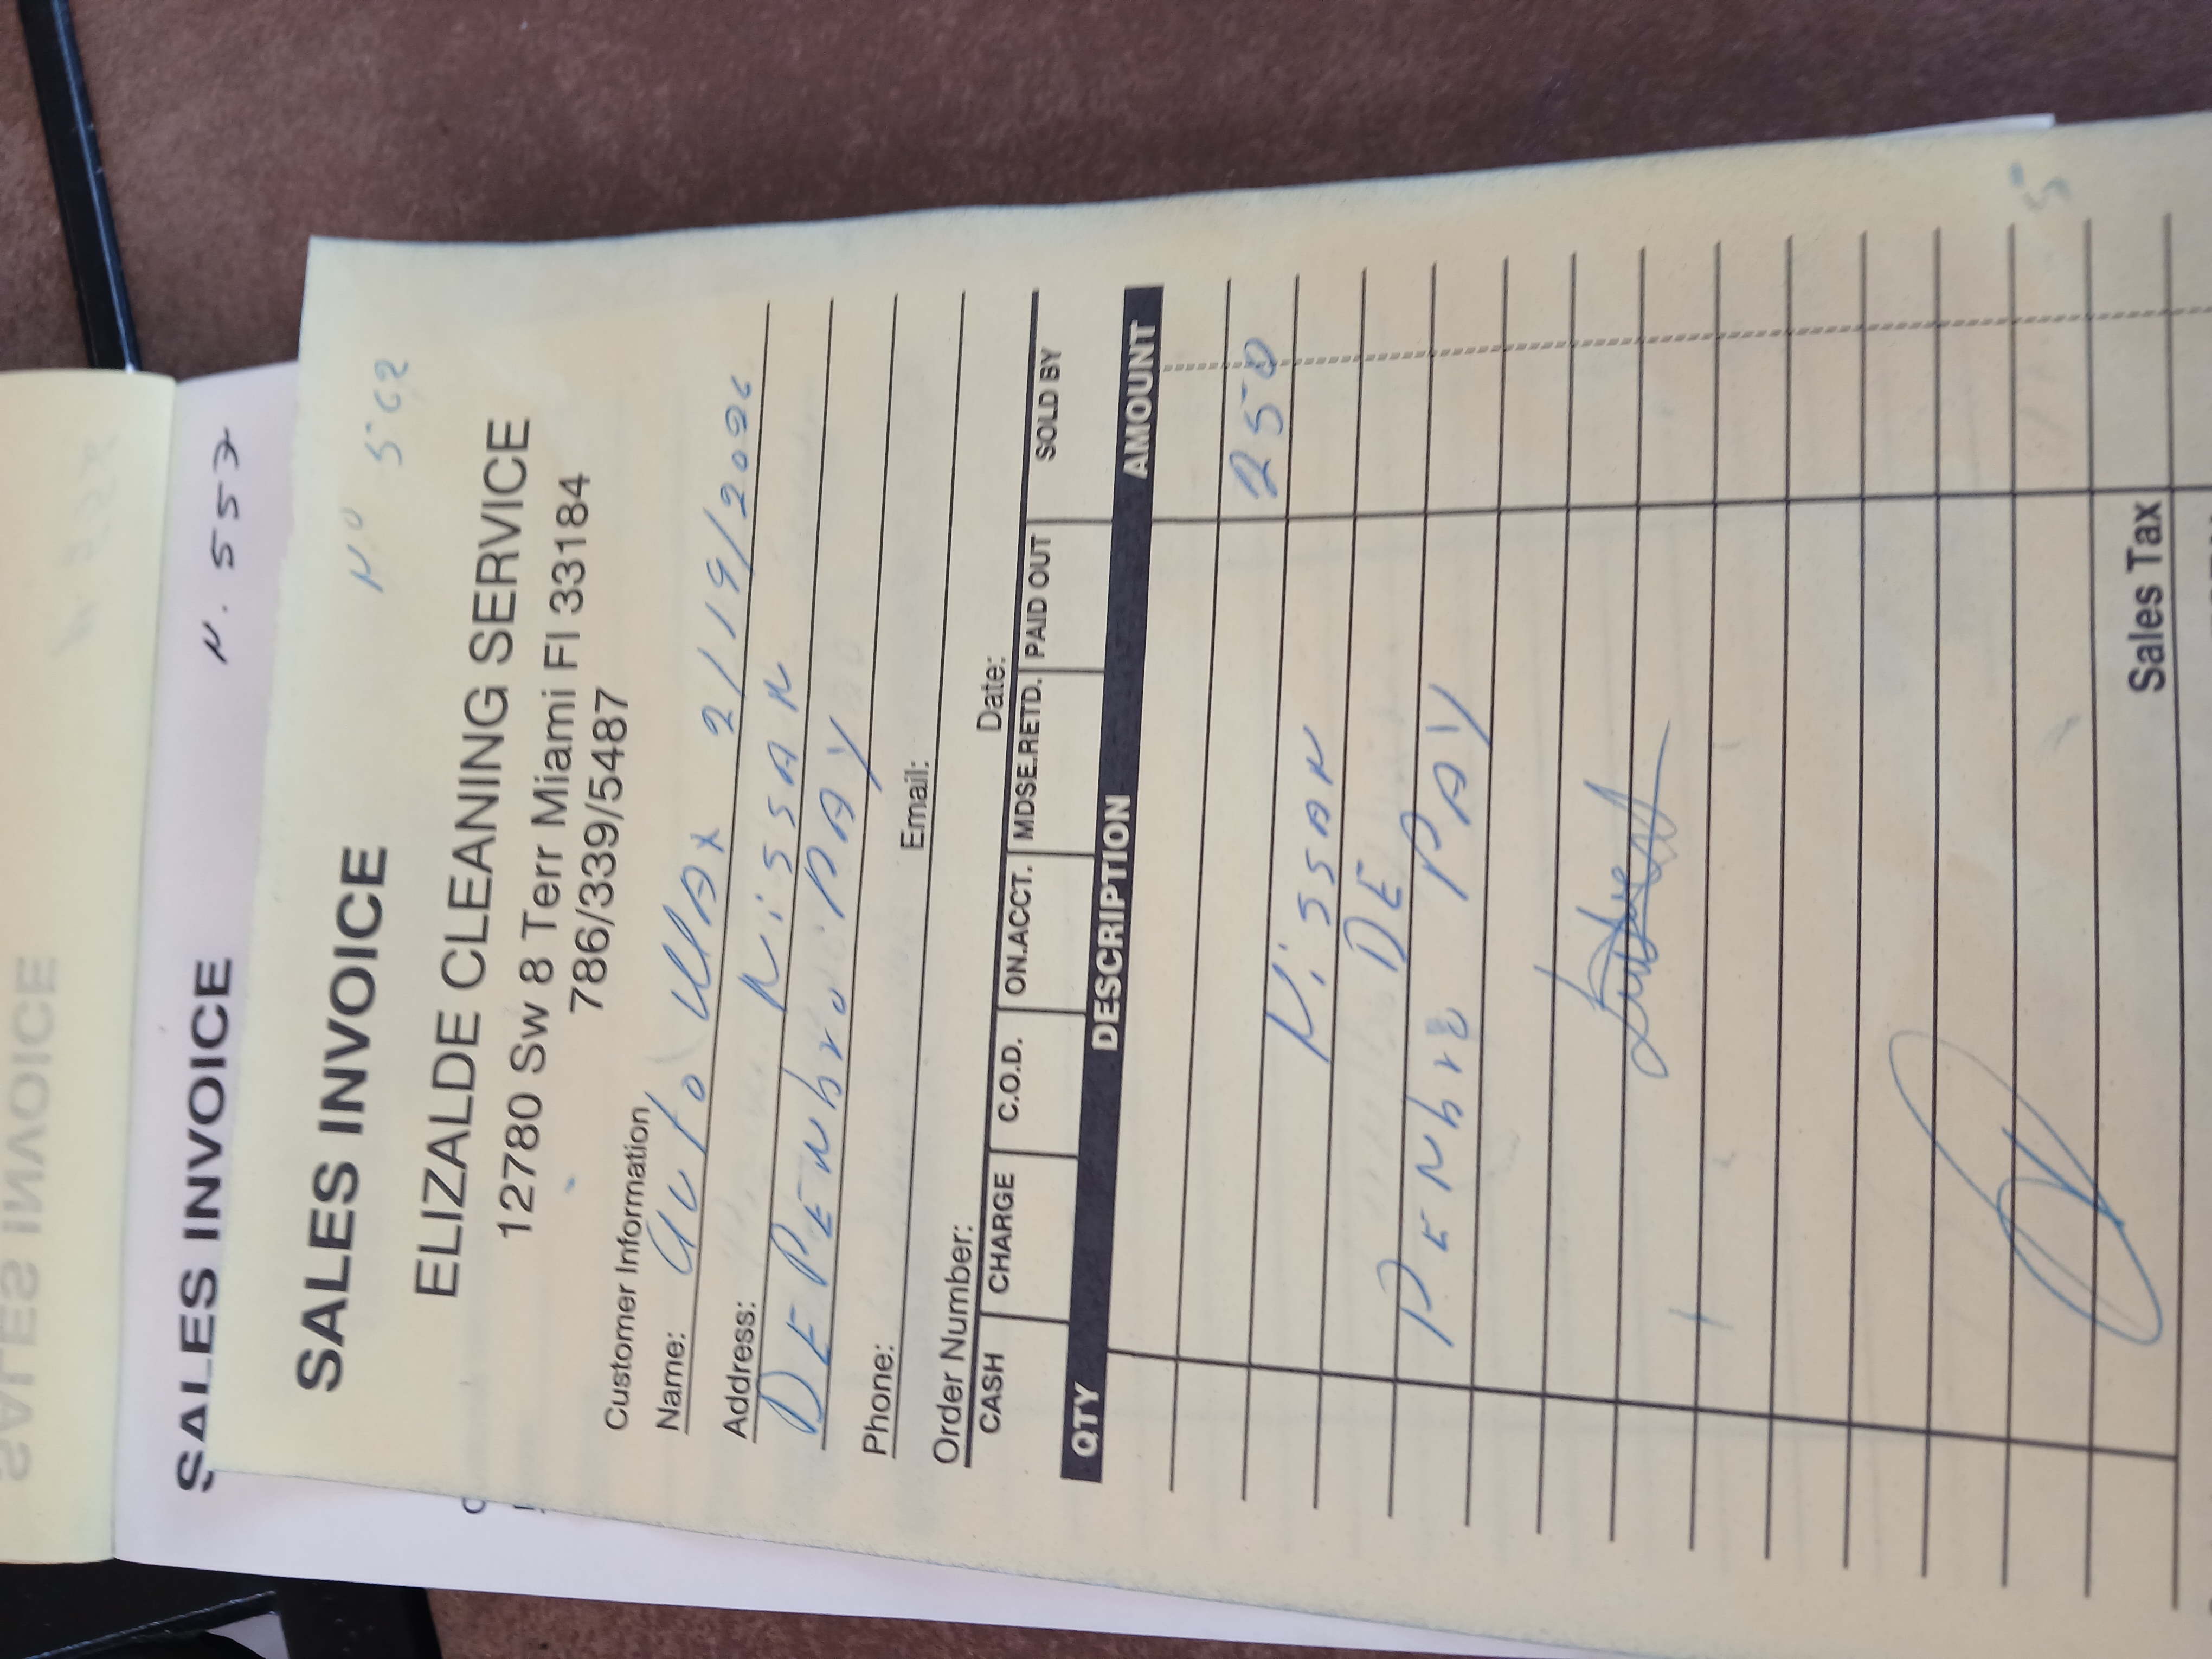 SALES INVOICE
SALES INVOICE
N. 557
No 562
SALES INVOICE
ELIZALDE CLEANING SERVICE
12780 Sw 8 Terr Miami Fl 33184
786/339/5487
Customer Information
Name: Auto MAX 2/19/2026
Address: NiSSAN
DE PENbro PAY
Phone:
Email:
Order Number:
Date:
CASH CHARGE C.O.D. ON.ACCT. MDSE.RETD. PAID OUT SOLD BY
QTY DESCRIPTION AMOUNT
250
NiSSAN
DE
PENbre PAY
Sales Tax